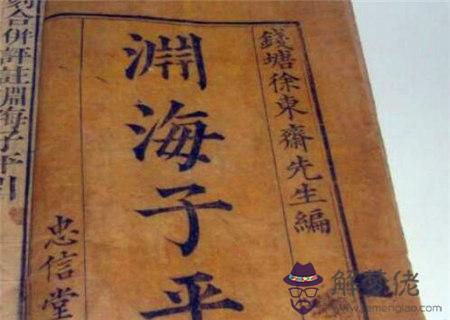 錢塘徐東齋先生編
淵海子平
忠信堂
刻合併評註淵海子平引
解夢佬